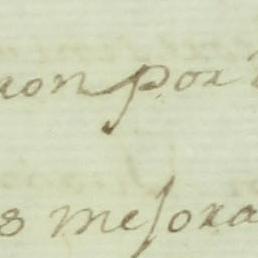 ron por
s mejora